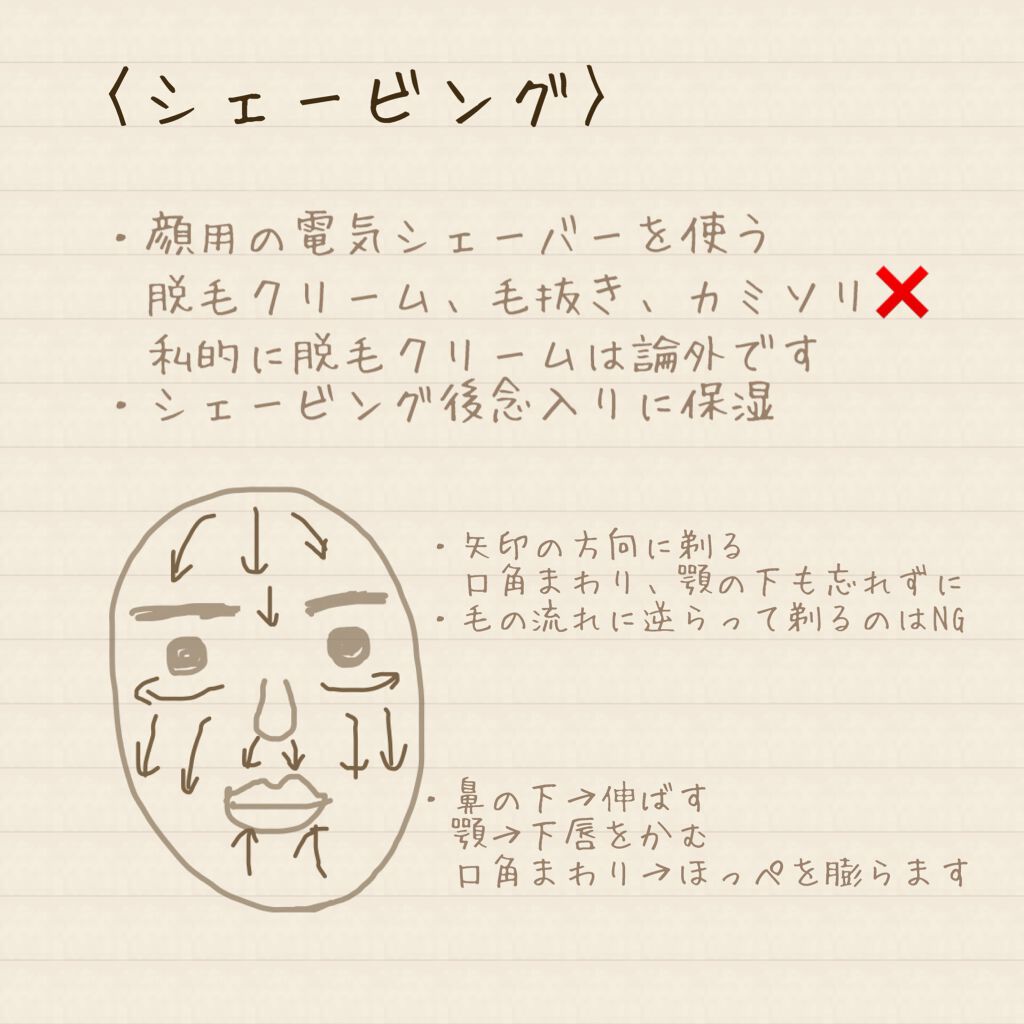 〈シェービング〉
・顔用の電気シェーバーを使う
脱毛クリーム、毛抜き、カミソリ❌
私的に脱毛クリームは論外です
・シェービング後念入りに保湿
・矢印の方向に剃る
口角まわり、顎の下も忘れずに
・毛の流れに逆らって剃るのはNG
・鼻の下→伸ばす
顎→下唇をかむ
口角まわり→ほっぺを膨らます